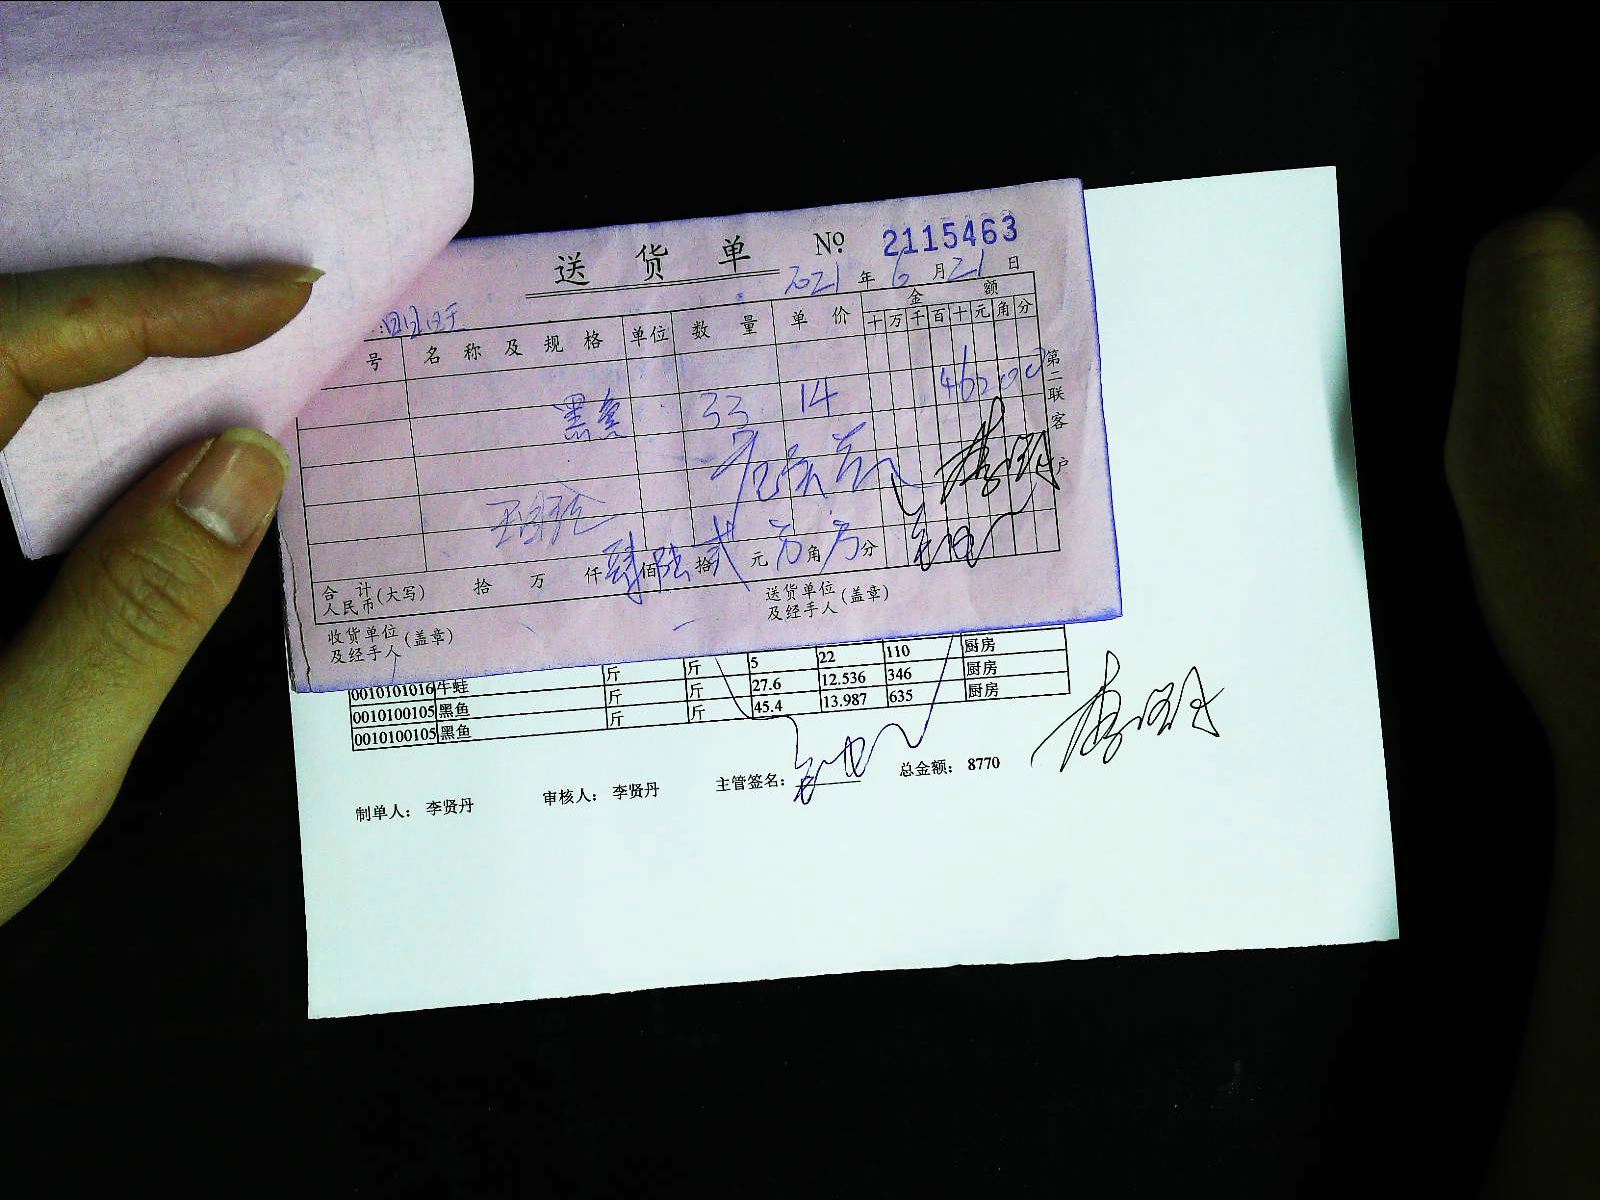 送货单 № 2115463
2021年6月21日
号 名称及规格 单位 数量 单价 金额
十万千百十元角分
黑鱼 33 14 46200
第二联 客户
合计人民币(大写) 拾 万 仟肆佰陆拾贰元 角 分
收货单位及经手人(盖章) 送货单位及经手人(盖章)
斤 斤 5 22 110 厨房
0010101016 牛蛙 斤 斤 27.6 12.536 346 厨房
0010100105 黑鱼 斤 斤 45.4 13.987 635 厨房
0010100105 黑鱼
制单人: 李贤丹 审核人: 李贤丹 主管签名: 总金额: 8770